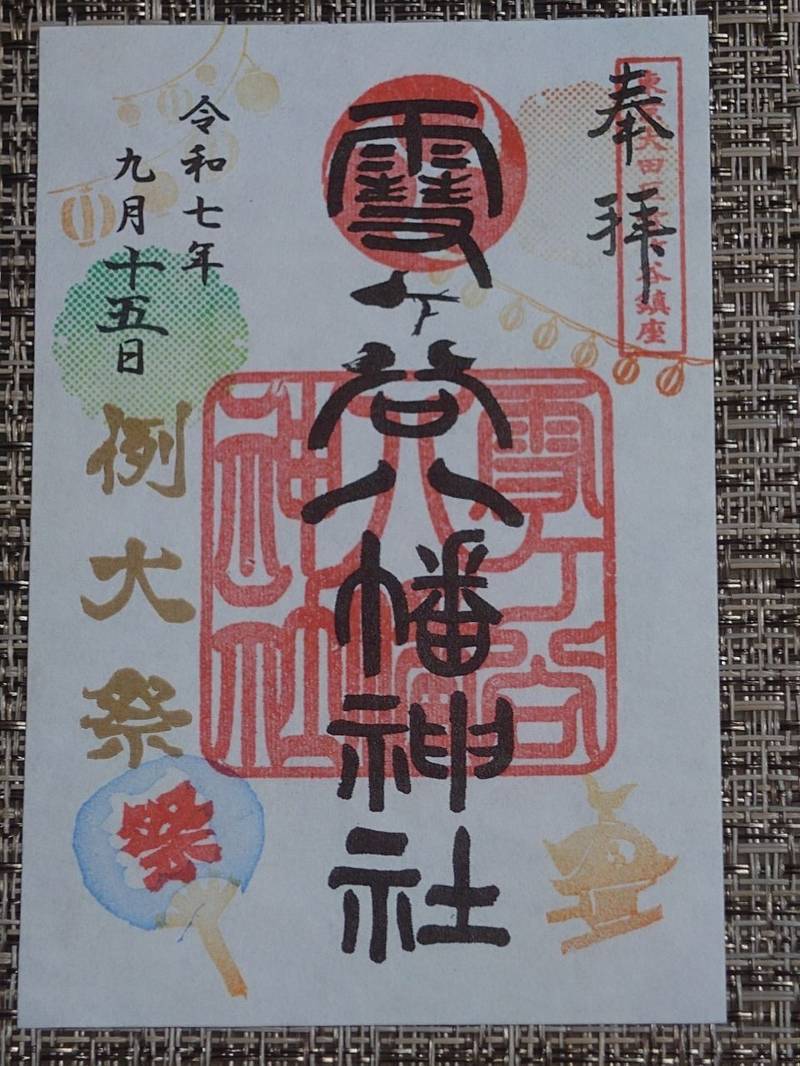 奉拝
東京大田区雪ヶ谷鎮座
雪ヶ谷八幡神社
雪ヶ谷
八幡
神社
令和七年
九月十五日
例大祭
祭